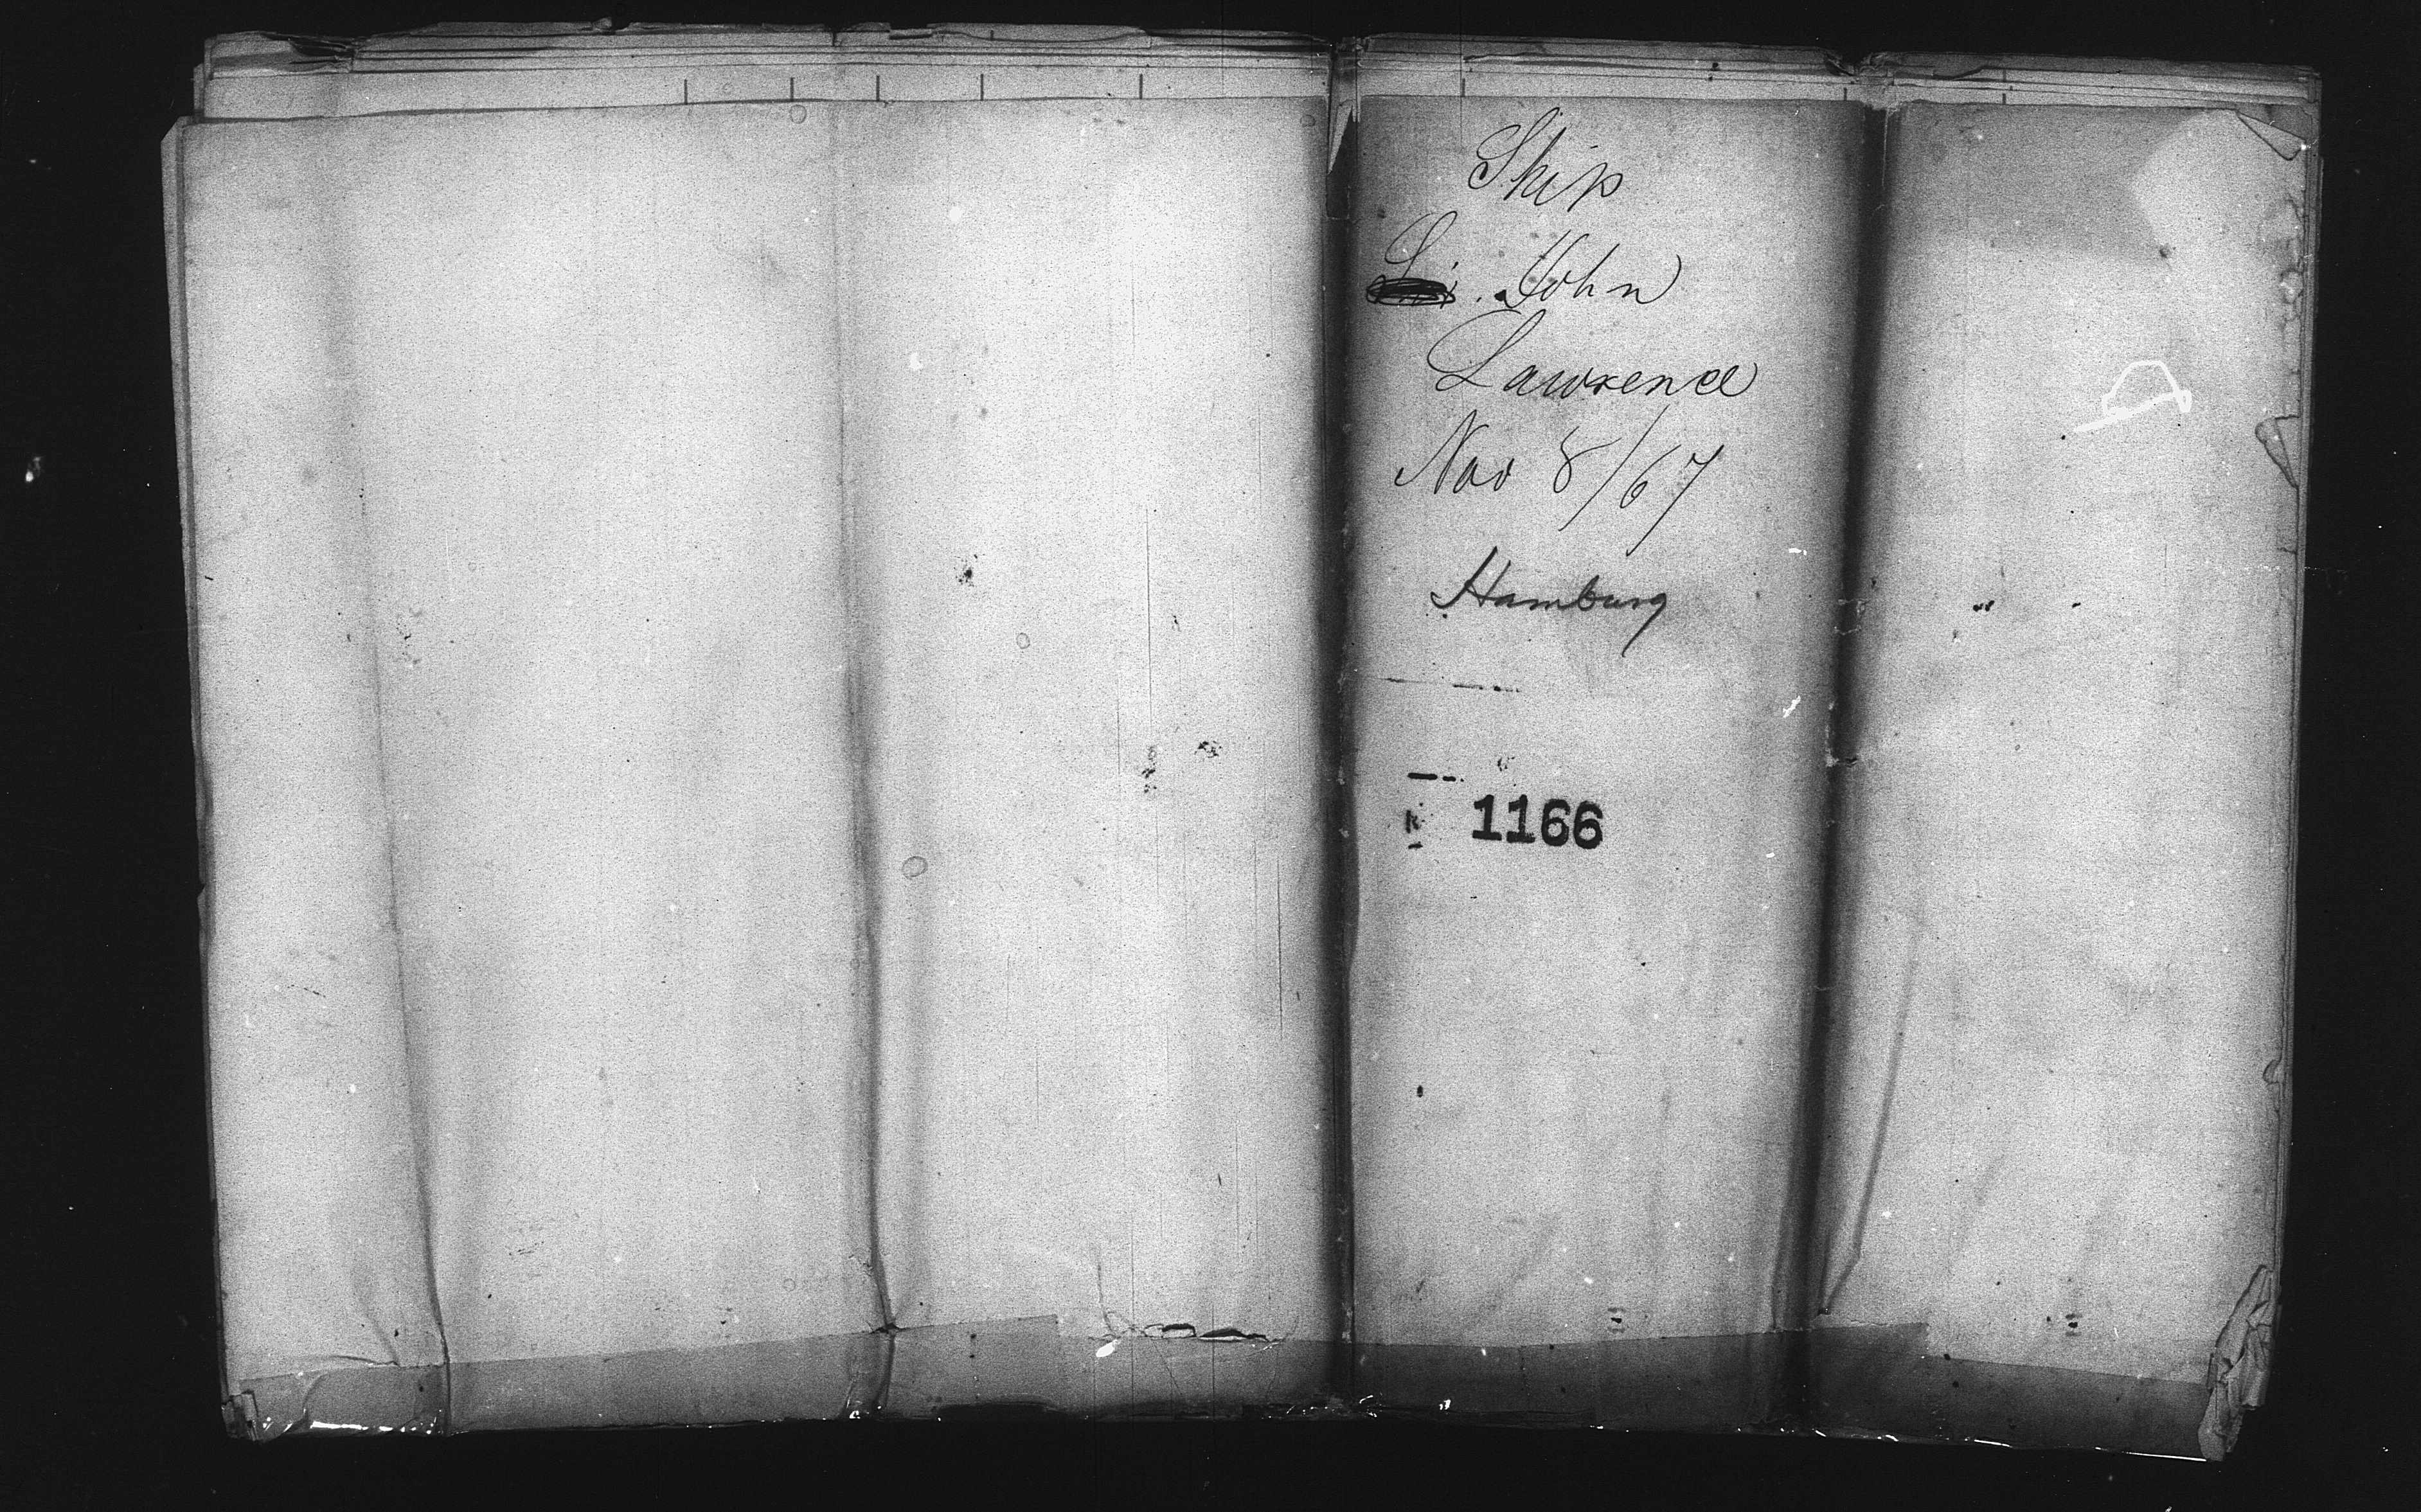 Ship
John
Lawrence
Nov 8/67
Hamburg
1166